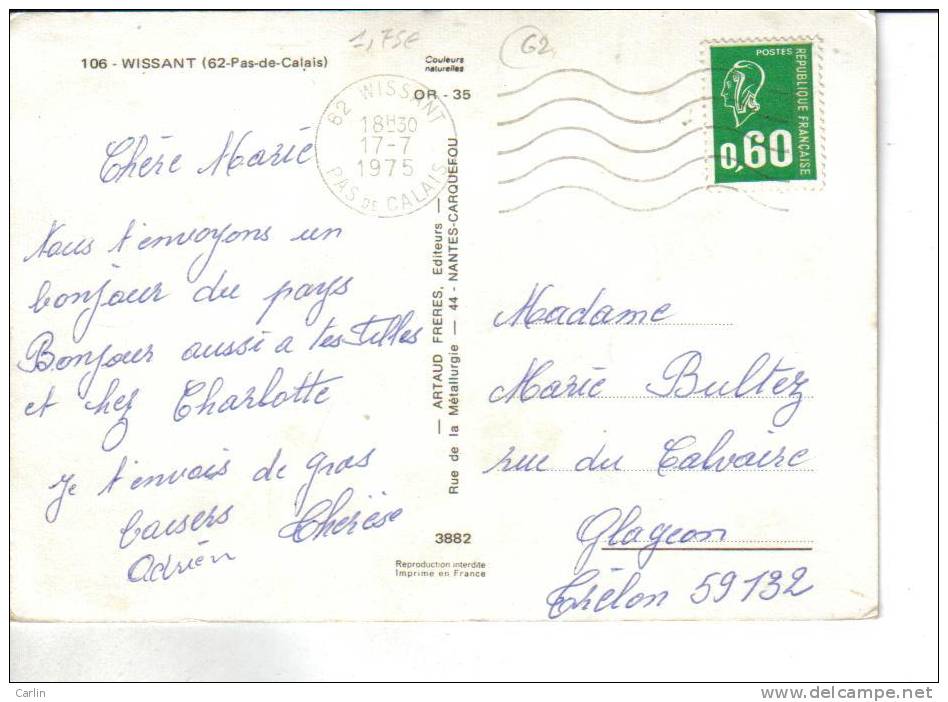 1,75€
62
106 - WISSANT (62-Pas-de-Calais)
Couleurs
naturelles
OR - 35
62 WISSANT
18H30
17-7
1975
PAS DE CALAIS
POSTES
REPUBLIQUE FRANÇAISE
0,60
Chère Marie
Nous t'envoyons un
bonjour du pays
Bonjour aussi a tes filles
et chez Charlotte
je t'envois de gros
baisers Thérèse
Adrien
— ARTAUD FRERES, Editeurs —
Rue de la Métallurgie — 44 - NANTES-CARQUEFOU
3882
Reproduction interdite
Imprimé en France
Madame
Marie Bultez
rue du Calvaire
Glageon
Trélon 59132
Carlin
delcampe.net